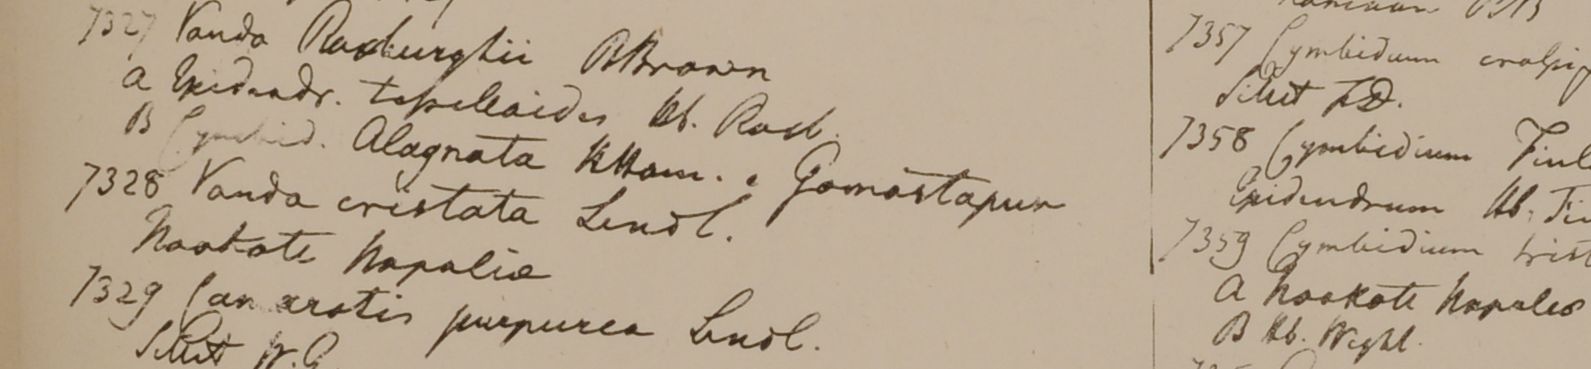 7327 Vanda Roxburghii RBrown
a Epidendr. tesselloides Hb. Roxb.
B Cymbid. Alagnata HHam. e Gomastapur
7328 Vanda cristata Lindl.
Noakote Napalia
7329 Camarotis purpurea Lindl.
Sillet W.G.
RBr
7357 Cymbidium
Sillet FD.
7358 Cymbidium Finl
Epidendrum Hb. Fin
7359 Cymbidium trist
a Noakote Napalia
B Hb. Wight.